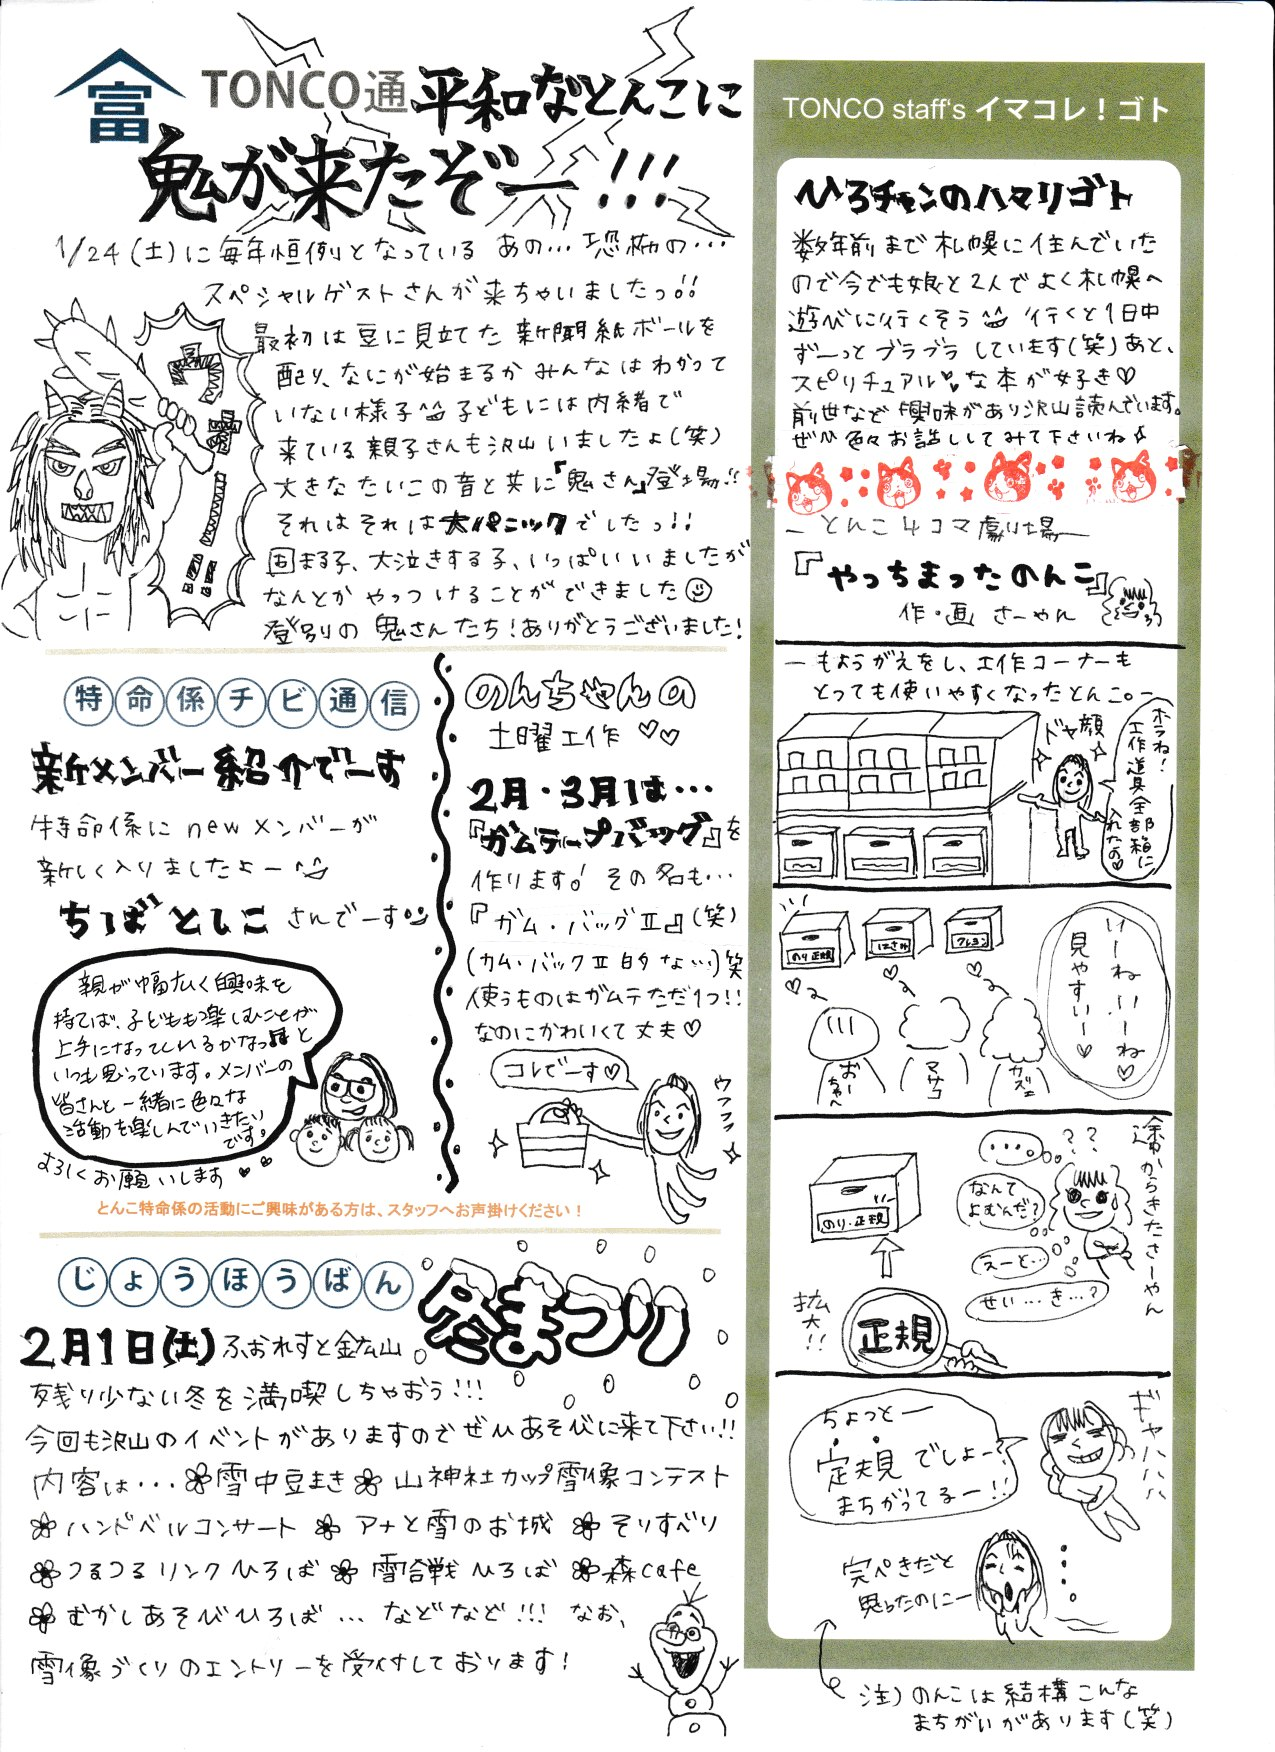 富
TONCO通 平和なとんこに
鬼が来たぞー!!!
1/24(土)に毎年恒例となっている あの…恐怖の…
スペシャルゲストさんが来ちゃいましたっ!!
最初は豆に見立てた新聞紙ボールを
配り、なにが始まるかみんなはわかって
いない様子 子どもには内緒で
来ている親子さんも沢山いましたよ(笑)
大きなたいこの音と共に『鬼さん』登場!!
それはそれは大パニックでしたっ!!
固まる子、大泣きする子、いっぱいいましたが
なんとか やっつけることができました
登別の鬼さんたち!ありがとうございました!
特命係チビ通信
新メンバー紹介でーす
特命係にnewメンバーが
新しく入りましたよー
ちば としこ さんでーす
親が幅広く興味を
持てば、子どもも楽しむことが
上手になってくれるかなっと
いつも思っています。メンバーの
皆さんと一緒に色々な
活動を楽しんでいきたい
です。
よろしくお願いします
のんちゃんの
土曜工作 ♡♡
2月・3月は…
『ガムテープバッグ』を
作ります! その名も…
『ガム・バッグⅡ』(笑)
(カム・バックⅡ的な…)笑
使うものはガムテただ1つ!!
なのにかわいくて丈夫♡
コレでーす♡
ウフフフ
とんこ特命係の活動にご興味がある方は、スタッフへお声掛けください!
じょうほうばん
冬まつり
2月1日(土) ふぉれすと鉱山
残り少ない冬を満喫しちゃおう!!!
今回も沢山のイベントがありますのでぜひあそびに来て下さい!!
内容は… 雪中豆まき 山神社カップ雪像コンテスト
ハンドベルコンサート アナと雪のお城 そりすべり
つるつるリンクひろば 雪合戦ひろば 森cafe
むかしあそびひろば …などなど!!! なお、
雪像づくりのエントリーを受付しております!
TONCO staff's イマコレ!ゴト
ひろチャンのハマリゴト
数年前まで札幌に住んでいた
ので今でも娘と2人でよく札幌へ
遊びに行くそう 行くと1日中
ずーっとブラブラしています(笑)あと、
スピリチュアルな本が好き♡
前世など興味があり沢山読んでいます。
ぜひ色々お話ししてみて下さいね
ーとんこ4コマ劇場ー
『やっちまったのんこ』
作・画 さーやん
ーもようがえをし、工作コーナーも
とっても使いやすくなったとんこ。ー
ドヤ顔
ホラね!
工作道具全部箱に
入れたの♡
のり 正規
はさみ
クレヨン
いーねいーね♡
見やすいー♡
おーちゃん
マサコ
カズエ
途中からきたさーやん
??
…
なんて
よむんだ?
えーと…
せい…き…?
のり・正規
拡大!!
正規
ちょっとー
定規でしょー?
まちがってるー!!
ギャハハハ
完ぺきだと
思ったのにー
注)のんこは結構こんな
まちがいがあります(笑)